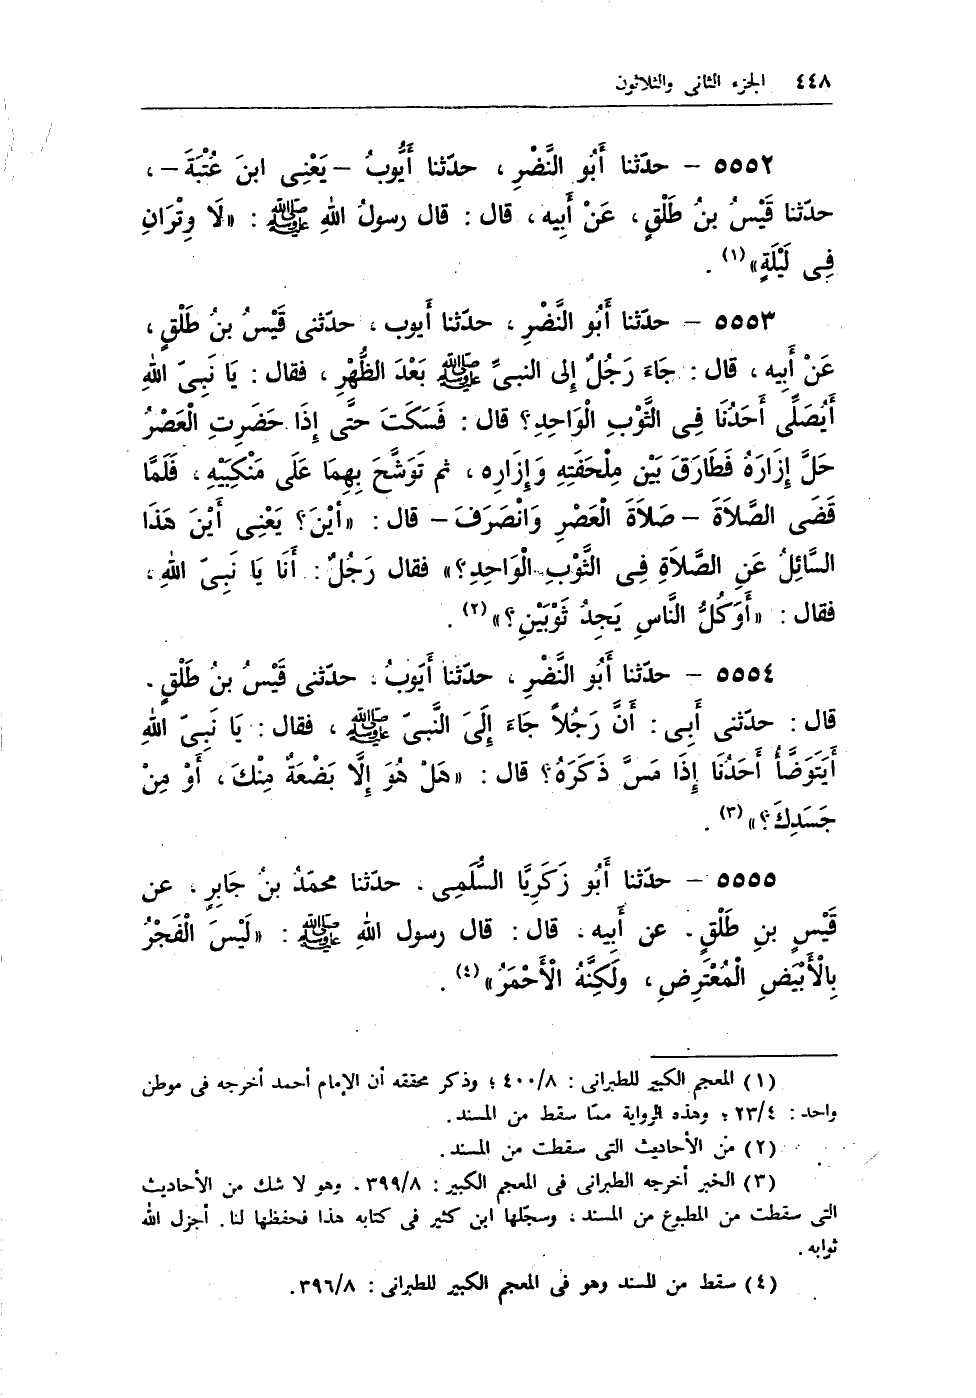 ٤٤٨ الجزء الثانى والثلاثون
٥٥٥٢ – حدّثنا أَبُو النَّضْرِ ، حدّثنا أَيُّوبُ – يَعْنِى ابنَ عُتْبَةَ – ،
حدّثنا قَيْسُ بنُ طَلْقٍ ، عَنْ أَبِيه ، قال : قال رسولُ اللهِ ﷺ : «لَا وِتْرَانِ
فِى لَيْلَةٍ»(١) .
٥٥٥٣ – حدّثنا أَبُو النَّضْرِ ، حدّثنا أيوب ، حدّثنى قَيْسُ بنُ طَلْقٍ ،
عَنْ أَبِيه ، قال : جَاءَ رَجُلٌ إلى النبىِّ ﷺ بَعْدَ الظُّهْرِ ، فقال : يَا نَبِىّ اللهِ
أَيُصَلِّى أَحَدُنَا فِى الثَّوْبِ الْوَاحِدِ؟ قال : فَسَكَتَ حتَّى إِذَا حَضَرتِ الْعَصْرُ
حَلَّ إِزَارَهُ فَطَارَقَ بَيْن مِلْحَفَتِهِ وَإِزَارِه ، ثم تَوَشَّحَ بِهِمَا عَلَى مَنْكِبَيْهِ ، فَلَمَّا
قَضَى الصَّلَاةَ – صَلَاةَ الْعَصْرِ وَانْصَرَفَ – قال : «أَيْنَ؟ يَعْنِى أَيْنَ هَذَا
السَّائِلُ عَنِ الصَّلَاةِ فِى الثَّوْبِ الْوَاحِدِ؟» فقال رَجُلٌ : أَنَا يَا نَبِىّ اللهِ ،
فقال : «أَوَكُلُّ النَّاسِ يَجِدُ ثَوْبَيْنِ؟»(٢) .
٥٥٥٤ – حدّثنا أَبُو النَّضْرِ ، حدّثنا أَيّوبُ ، حدّثنى قَيْسُ بنُ طَلْقٍ .
قال : حدّثنى أَبِى : أَنَّ رَجُلاً جَاءَ إِلَى النَّبىِّ ﷺ ، فقال : يَا نَبِىّ اللهِ
أَيَتَوَضَّأُ أَحَدُنَا إِذَا مَسَّ ذَكَرَهُ؟ قال : «هَلْ هُوَ إِلَّا بَضْعَةٌ مِنْكَ ، أَوْ مِنْ
جَسَدِكَ؟»(٣) .
٥٥٥٥ – حدّثنا أَبُو زَكَرِيَّا السُّلَمِى ، حدّثنا محمّدُ بنُ جَابِرٍ ، عن
قَيْسِ بنِ طَلْقٍ . عن أَبِيه . قال : قال رسول اللهِ ﷺ : «لَيْسَ الْفَجْرُ
بِالْأَبْيَضِ الْمُعْتَرِضِ ، ولَكِنَّهُ الْأَحْمَرُ»(٤) .
(١) المعجم الكبير للطبرانى : ٤٠٠/٨ ؛ وذكر محققه أن الإمام أحمد أخرجه فى موطن
واحد : ٢٣/٤ ؛ وهذه الرواية ممّا سقط من المسند .
(٢) من الأحاديث التى سقطت من المسند .
(٣) الخبر أخرجه الطبرانى فى المعجم الكبير : ٣٩٩/٨ . وهو لا شك من الأحاديث
التى سقطت من المطبوع من المسند ، وسجّلها ابن كثير فى كتابه هذا فحفظها لنا . أجزل الله
ثوابه .
(٤) سقط من المسند وهو فى المعجم الكبير للطبرانى : ٣٩٦/٨ .